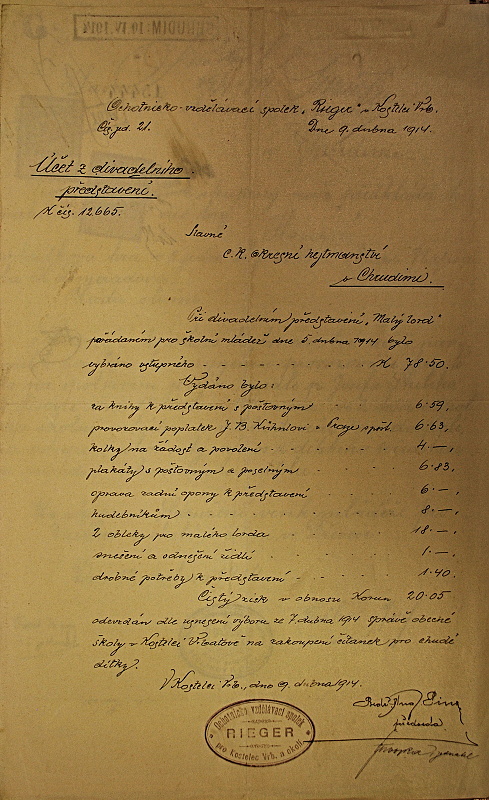 CHRUDIM: 10.IV.1914
Ochotnicko-vzdělávací spolek „Rieger" v Kostelci Vrb.
Čís. jd. 21. Dne 9. dubna 1914.
Účet z divadelního
představení.
K čís. 12.665.
Slavné
C. K. okresní hejtmanství
v Chrudimi.
Při divadelním představení „Malý lord"
pořádaném pro školní mládež dne 5. dubna 1914 bylo
vybráno vstupného - - - - - - K 78·50.
Vydáno bylo:
za knihy k představení s poštovným 6·59,
provozovací poplatek J. B. Kühnlovi v Praze 6·63,
kolky na žádost a povolení 4·—,
plakáty s poštovným a poselným 6·83,
oprava zadní opony k představení 6·—,
hudebníkům 8·—,
2 obleky pro malého lorda 18·—,
snešení a odnešení židlí 1·—,
drobné potřeby k představení 1·40.
Čistý zisk v obnosu Korun 20·05
odevzdán dle usnesení výboru ze 7. dubna 1914 správě obecné
školy v Kostelci Vrbatově na zakoupení čítanek pro chudé
dítky.
V Kostelci Vrb., dne 9. dubna 1914.
předseda
Ochotnicko vzdělávací spolek
RIEGER
pro Kostelec Vrb. a okolí